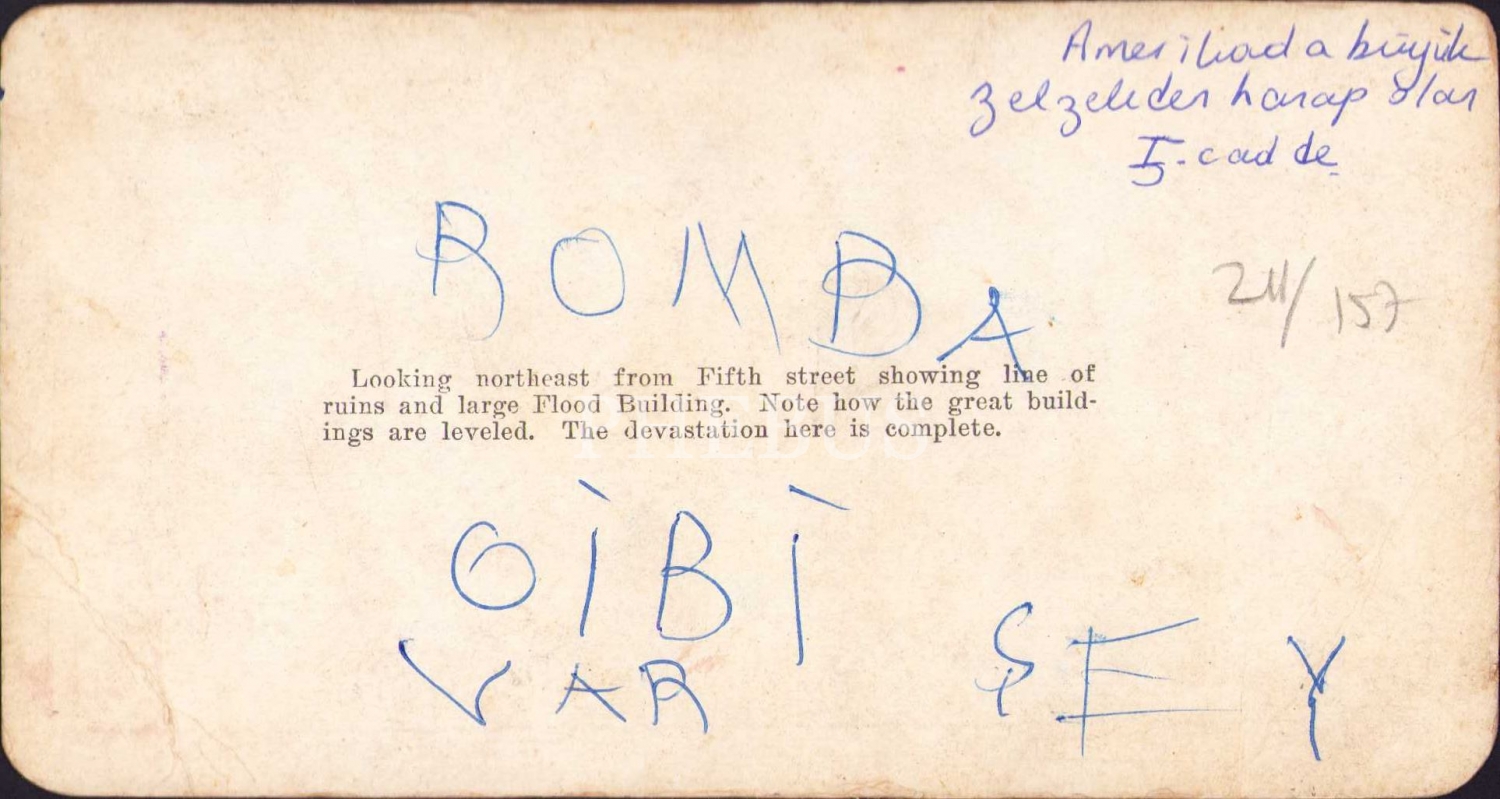 Amerikada büyük
zelzeleden harap olan
5. cadde
BOMBA
211/157
Looking northeast from Fifth street showing line of
ruins and large Flood Building. Note how the great build-
ings are leveled. The devastation here is complete.
PHEBUS
GİBİ
VAR ŞEY